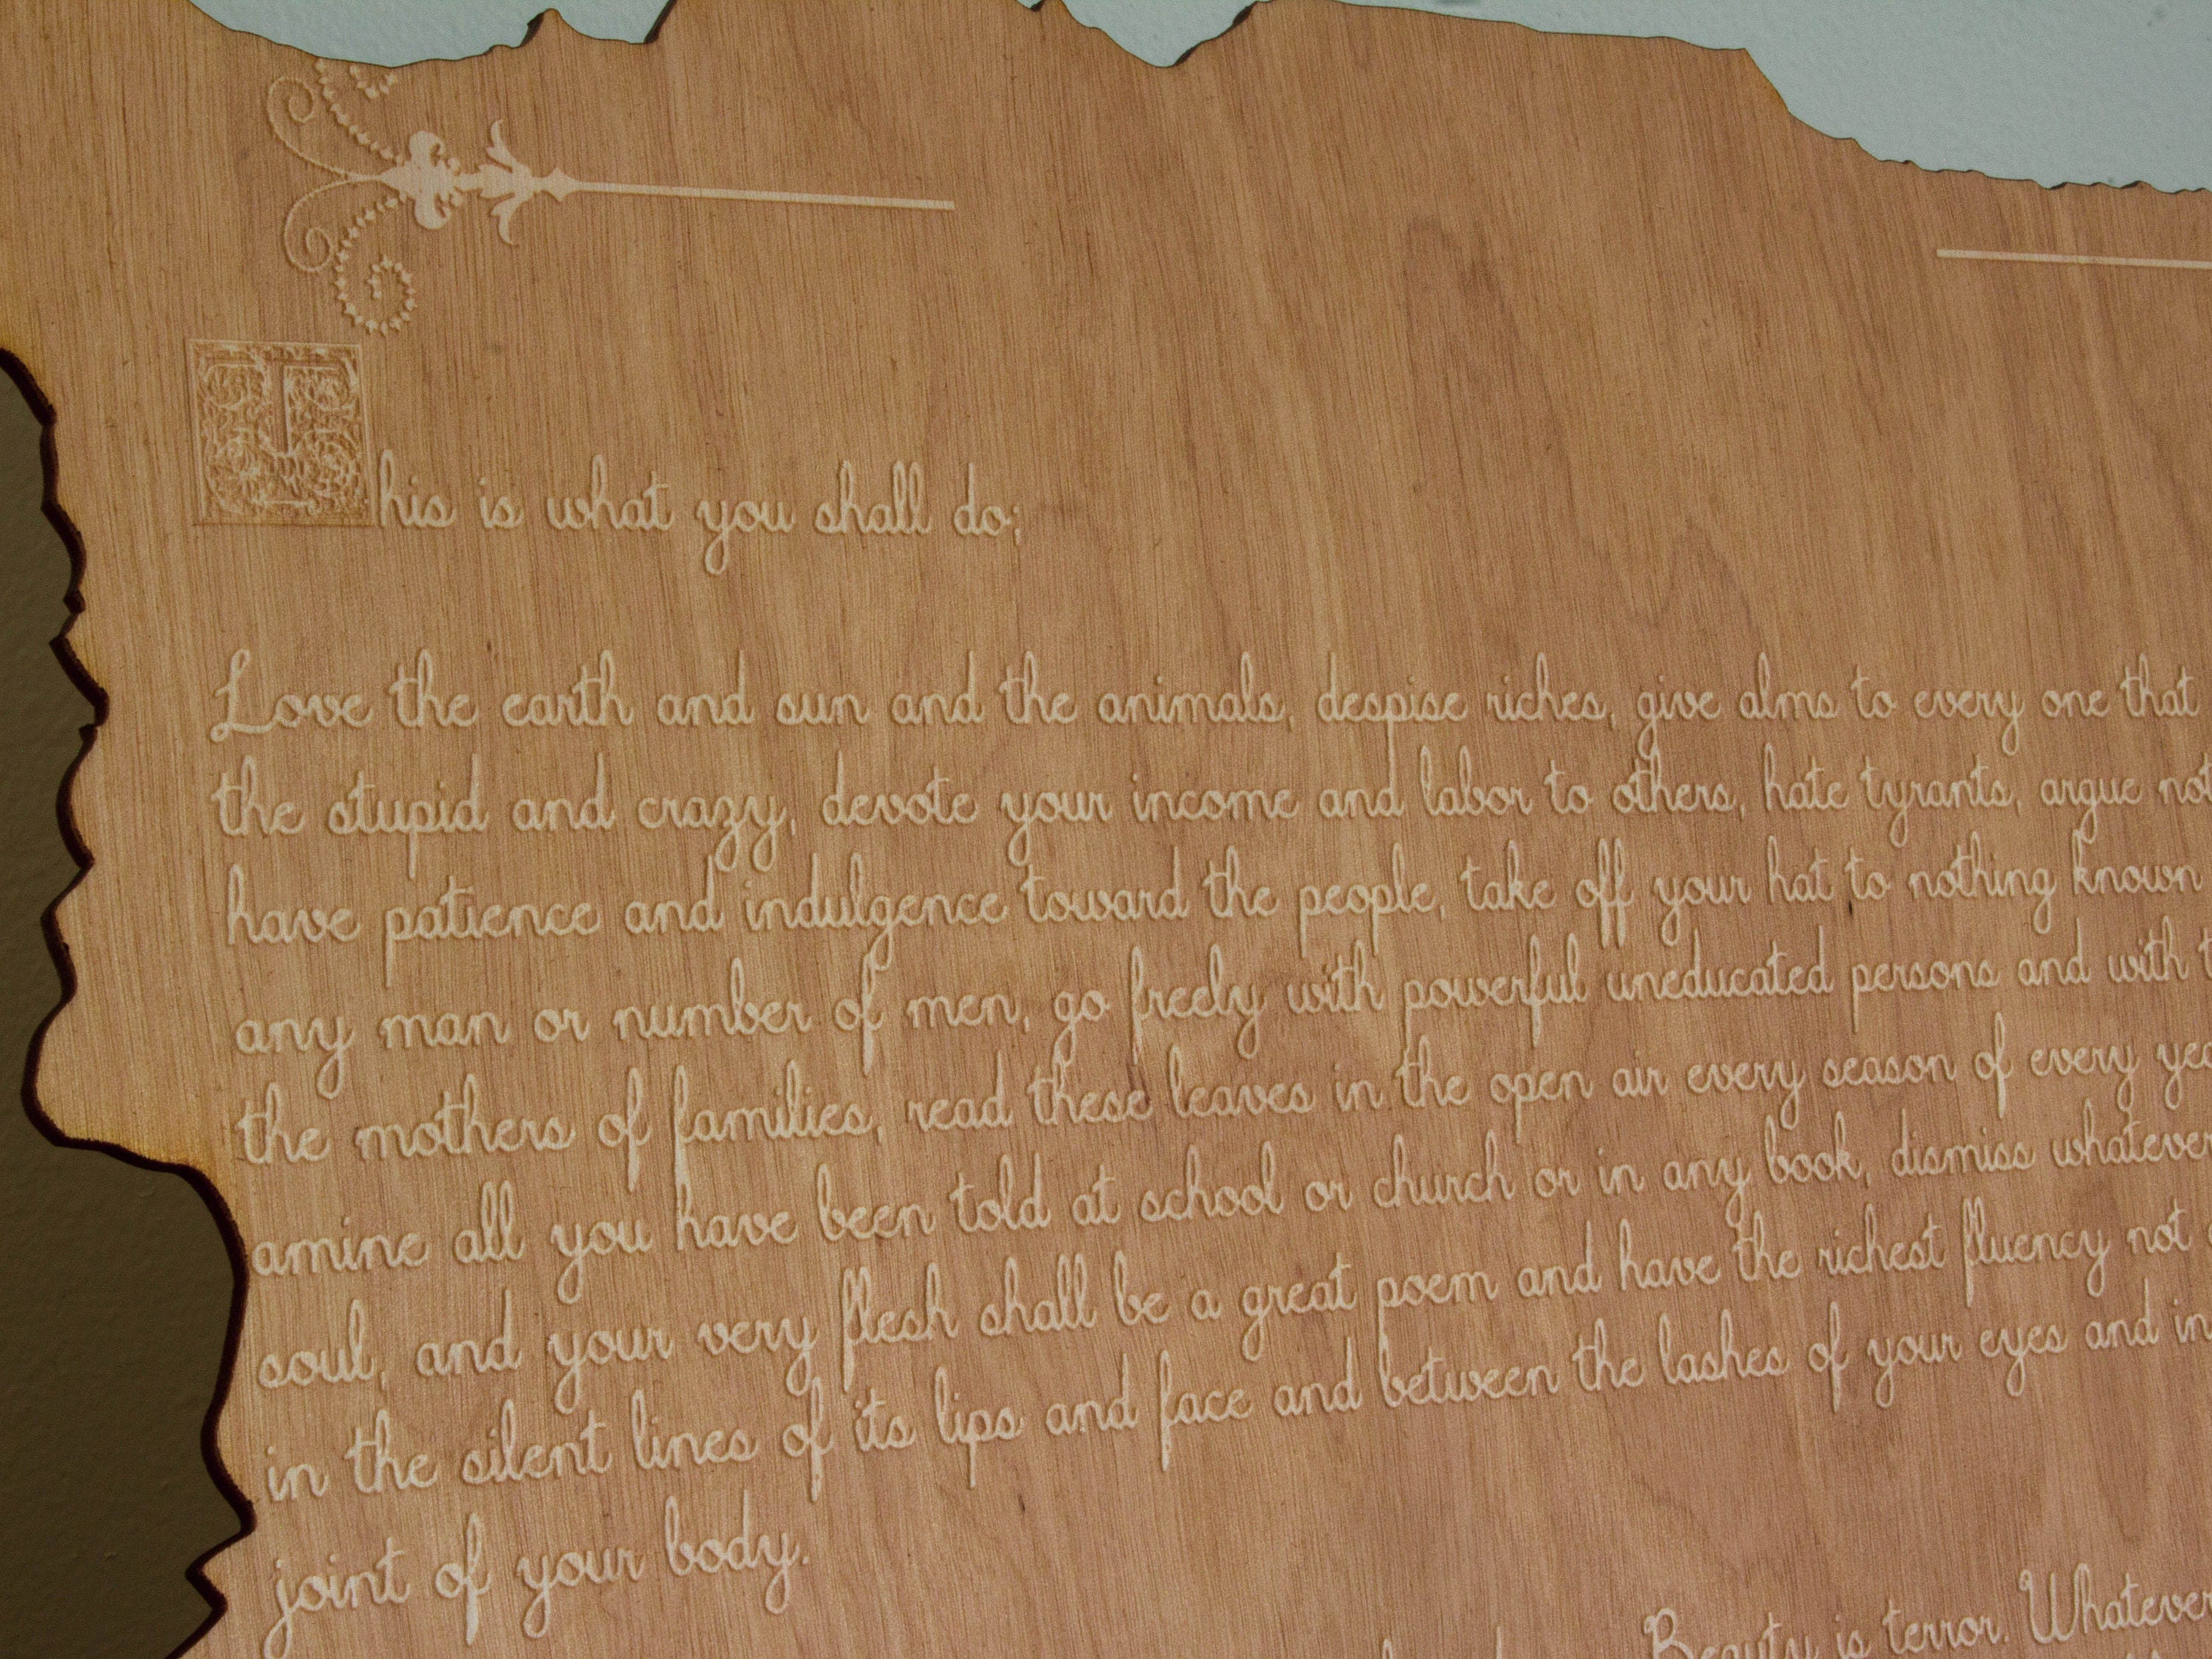 This is what you shall do;
Love the earth and sun and the animals, despise riches, give alms to every one that
the stupid and crazy, devote your income and labor to others, hate tyrants, argue not
have patience and indulgence toward the people, take off your hat to nothing known
any man or number of men, go freely with powerful uneducated persons and with t
the mothers of families, read these leaves in the open air every season of every yea
amine all you have been told at school or church or in any book, dismiss whatever
soul, and your very flesh shall be a great poem and have the richest fluency not
in the silent lines of its lips and face and between the lashes of your eyes and in
joint of your body.
Beauty is terror. Whatever